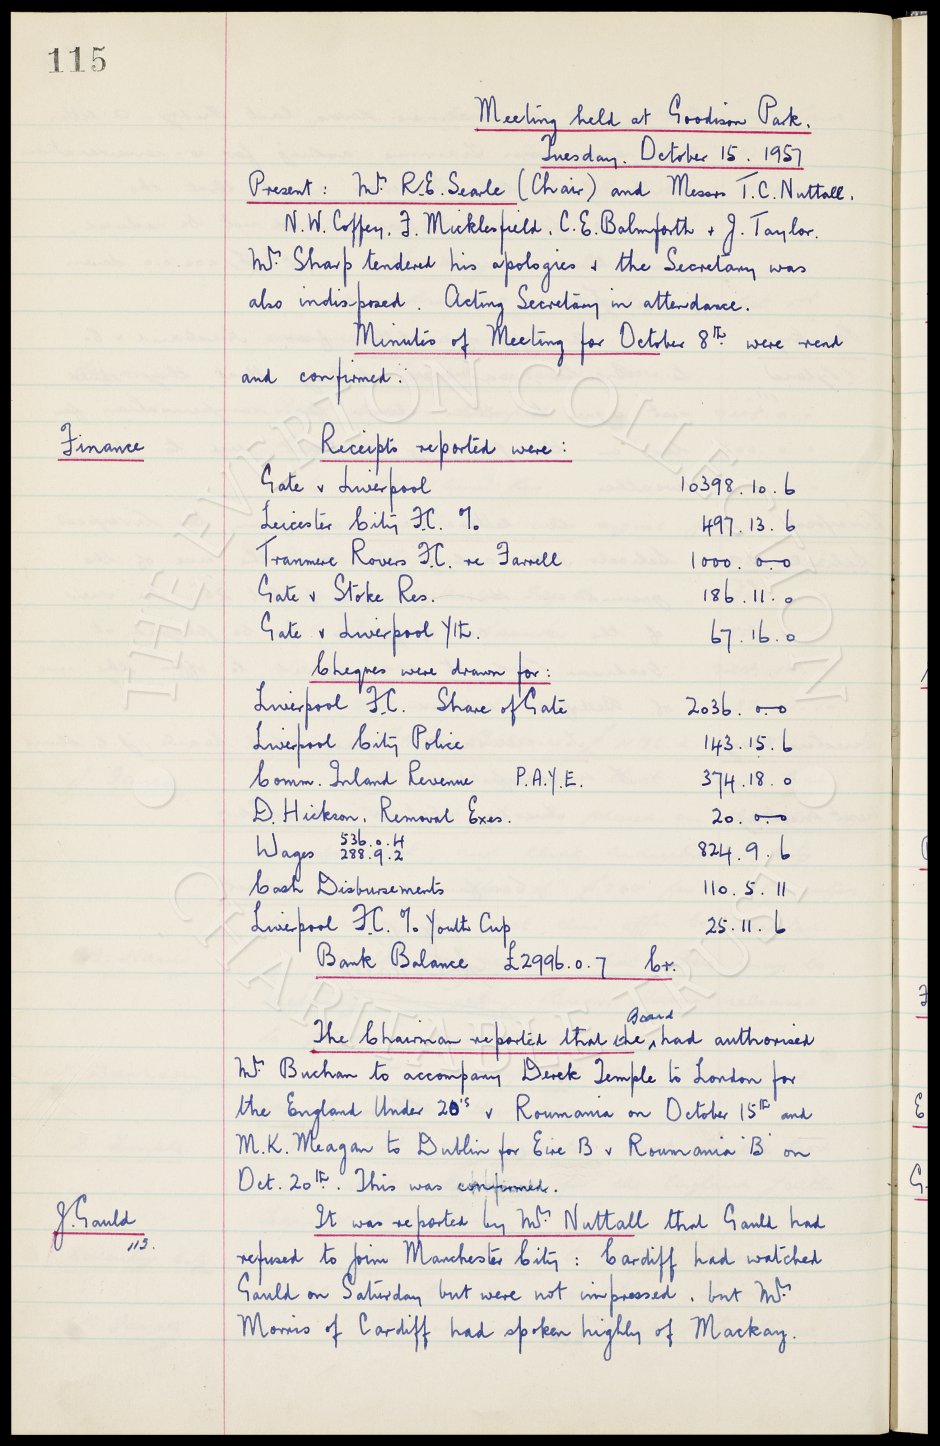 115
Meeting held at Goodison Park.
Tuesday. October 15. 1957
Present: Mr. R.E. Searle (Chair) and Messrs T.C. Nuttall.
N.W. Coffey, F. Micklesfield, C.E. Balmforth + J. Taylor.
Mr. Sharp tendered his apologies + the Secretary was
also indisposed. Acting Secretary in attendance.
Minutes of Meeting for October 8th were read
and confirmed.
Finance
Receipts reported were:
Gate v Liverpool 10398.10.6
Leicester City F.C. % 497.13.6
Tranmere Rovers F.C. re Farrell 1000.0-0
Gate v Stoke Res. 186.11.0
Gate v Liverpool Yth. 67.16.0
Cheques were drawn for:
Liverpool F.C. Share of Gate 2036.0-0
Liverpool City Police 143.15.6
Comm. Inland Revenue P.A.Y.E. 374.18.0
D. Hickson, Removal Exes. 20.0-0
Wages 536.0.4 288.9.2 824.9.6
Cash Disbursements 110.5.11
Liverpool F.C. % Youth Cup 25.11.6
Bank Balance £2996.0.7 Cr.
Board
The Chairman reported that the had authorised
Mr. Buchan to accompany Derek Temple to London for
the England Under 20's v Roumania on October 15th and
M.K. Meagan to Dublin for Eire B v Roumania 'B' on
Oct. 20th. This was confirmed.
J. Gauld
113.
It was reported by Mr. Nuttall that Gauld had
refused to join Manchester City: Cardiff had watched
Gauld on Saturday but were not impressed, but Mr.
Morris of Cardiff had spoken highly of Mackay.
THE EVERTON COLLECTION
CHARITABLE TRUST